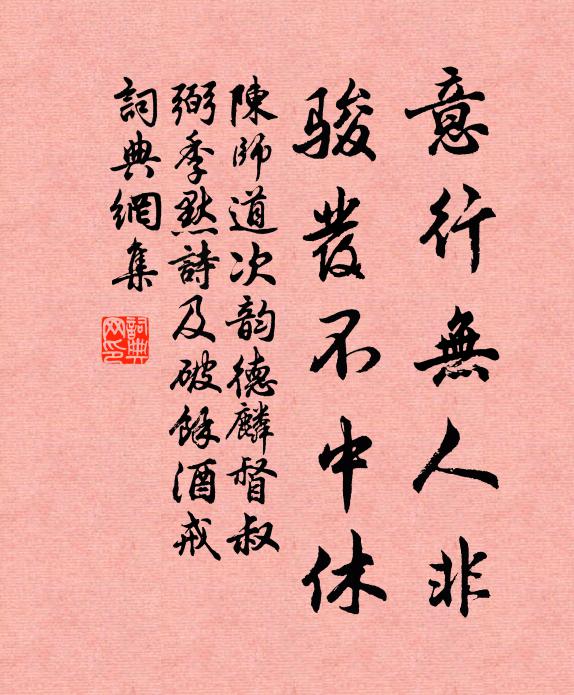 意行無人非
駿發不中休
陳師道次韵德麟督叔
弼季默詩及破餘酒戒
詞典網集
詞典网印